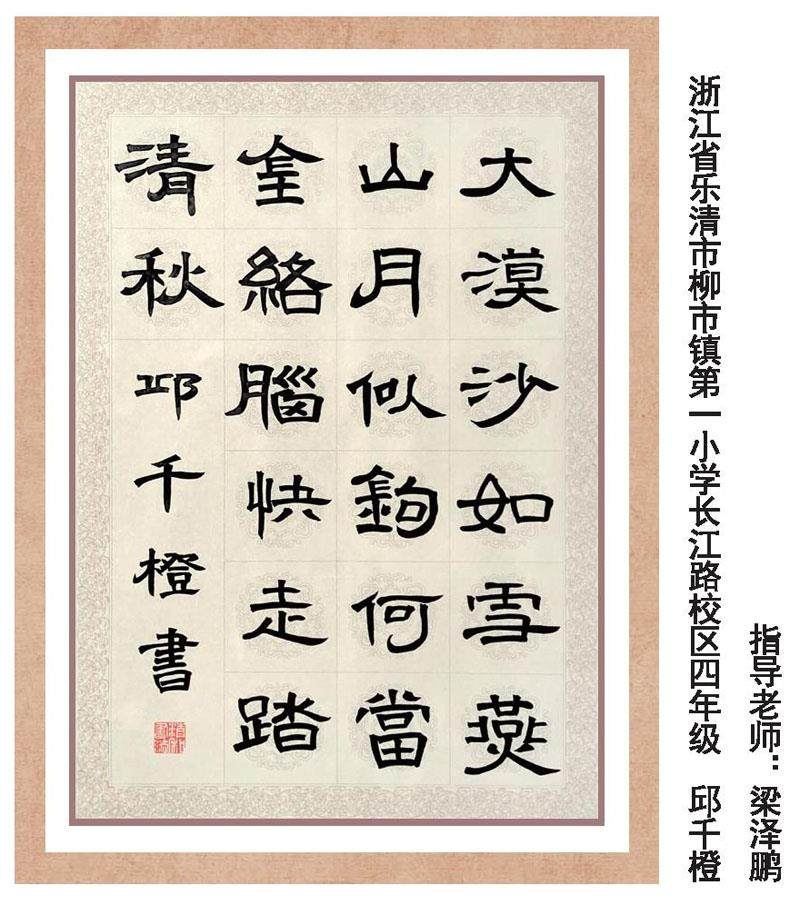 大漠沙如雪燕
山月似鉤何當
金絡腦快走踏
清秋 邱千橙書
浙江省乐清市柳市镇第一小学长江路校区四年级 邱千橙
指导老师：梁泽鹏